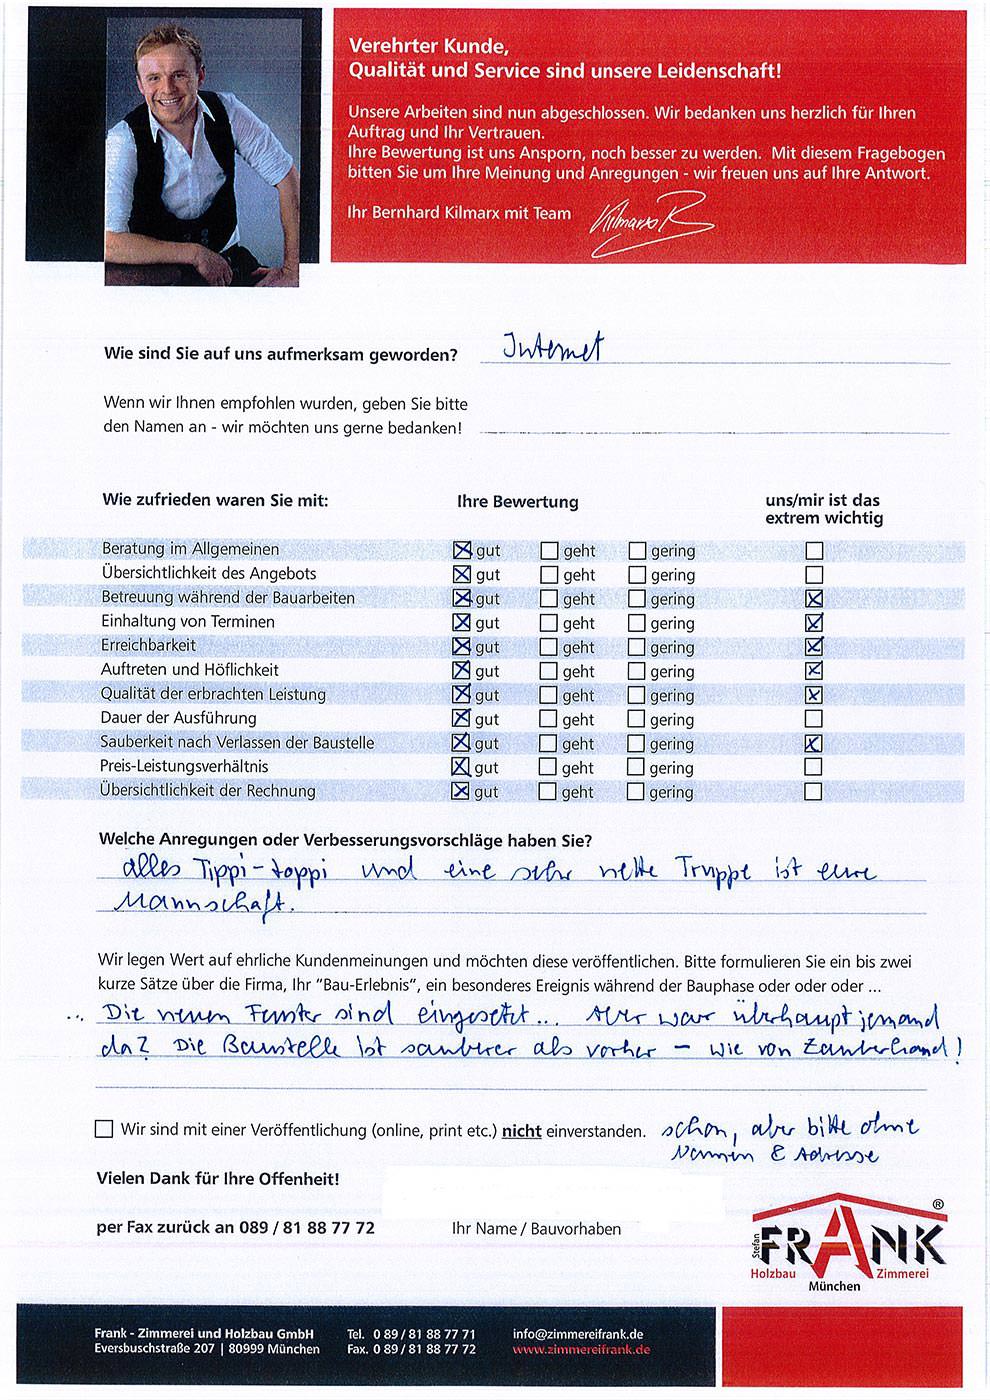 Verehrter Kunde,
Qualität und Service sind unsere Leidenschaft!
Unsere Arbeiten sind nun abgeschlossen. Wir bedanken uns herzlich für Ihren
Auftrag und Ihr Vertrauen.
Ihre Bewertung ist uns Ansporn, noch besser zu werden. Mit diesem Fragebogen
bitten Sie um Ihre Meinung und Anregungen - wir freuen uns auf Ihre Antwort.
Ihr Bernhard Kilmarx mit Team Kilmarx B
Wie sind Sie auf uns aufmerksam geworden? Internet
Wenn wir Ihnen empfohlen wurden, geben Sie bitte
den Namen an - wir möchten uns gerne bedanken!
Wie zufrieden waren Sie mit: Ihre Bewertung uns/mir ist das
extrem wichtig
Beratung im Allgemeinen gut geht gering
Übersichtlichkeit des Angebots gut geht gering
Betreuung während der Bauarbeiten gut geht gering
Einhaltung von Terminen gut geht gering
Erreichbarkeit gut geht gering
Auftreten und Höflichkeit gut geht gering
Qualität der erbrachten Leistung gut geht gering
Dauer der Ausführung gut geht gering
Sauberkeit nach Verlassen der Baustelle gut geht gering
Preis-Leistungsverhältnis gut geht gering
Übersichtlichkeit der Rechnung gut geht gering
Welche Anregungen oder Verbesserungsvorschläge haben Sie?
alles Tippi-toppi und eine sehr nette Truppe ist eure
Mannschaft.
Wir legen Wert auf ehrliche Kundenmeinungen und möchten diese veröffentlichen. Bitte formulieren Sie ein bis zwei
kurze Sätze über die Firma, Ihr "Bau-Erlebnis", ein besonderes Ereignis während der Bauphase oder oder oder ...
.. Die neuen Fenster sind eingesetzt... Aber war überhaupt jemand
da? Die Baustelle ist sauberer als vorher – wie von Zauberhand!
Wir sind mit einer Veröffentlichung (online, print etc.) nicht einverstanden. schon, aber bitte ohne
Namen & Adresse
Vielen Dank für Ihre Offenheit!
per Fax zurück an 089 / 81 88 77 72 Ihr Name / Bauvorhaben
Stefan FRANK ®
Holzbau Zimmerei
München
Frank - Zimmerei und Holzbau GmbH Tel. 0 89 / 81 88 77 71 info@zimmereifrank.de
Eversbuschstraße 207 | 80999 München Fax. 0 89 / 81 88 77 72 www.zimmereifrank.de